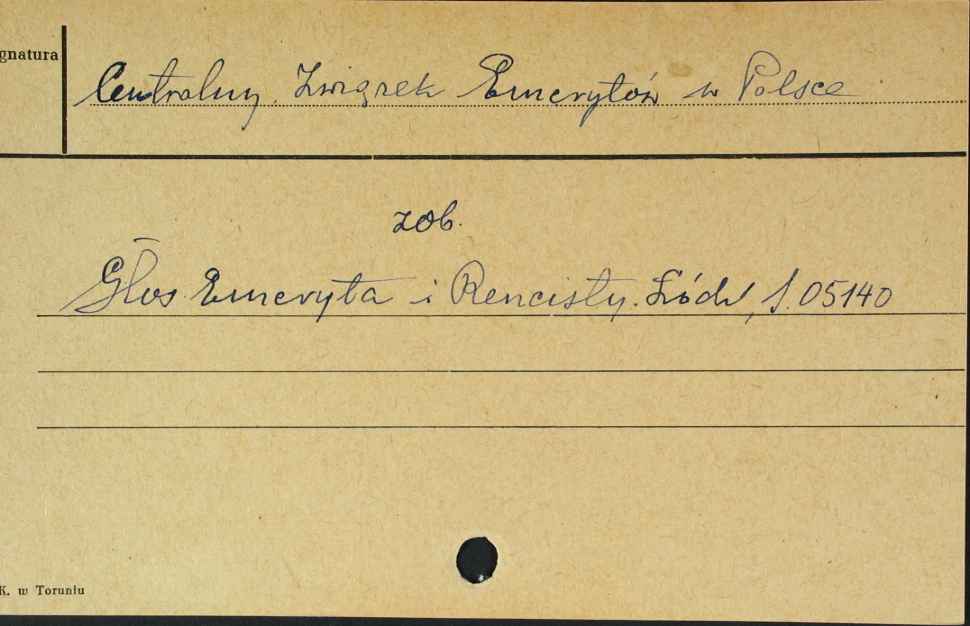 gnatura
Centralny Związek Emerytów w Polsce
zob.
Głos Emeryta i Rencisty. Łódź, S. 05140
K. w Toruniu